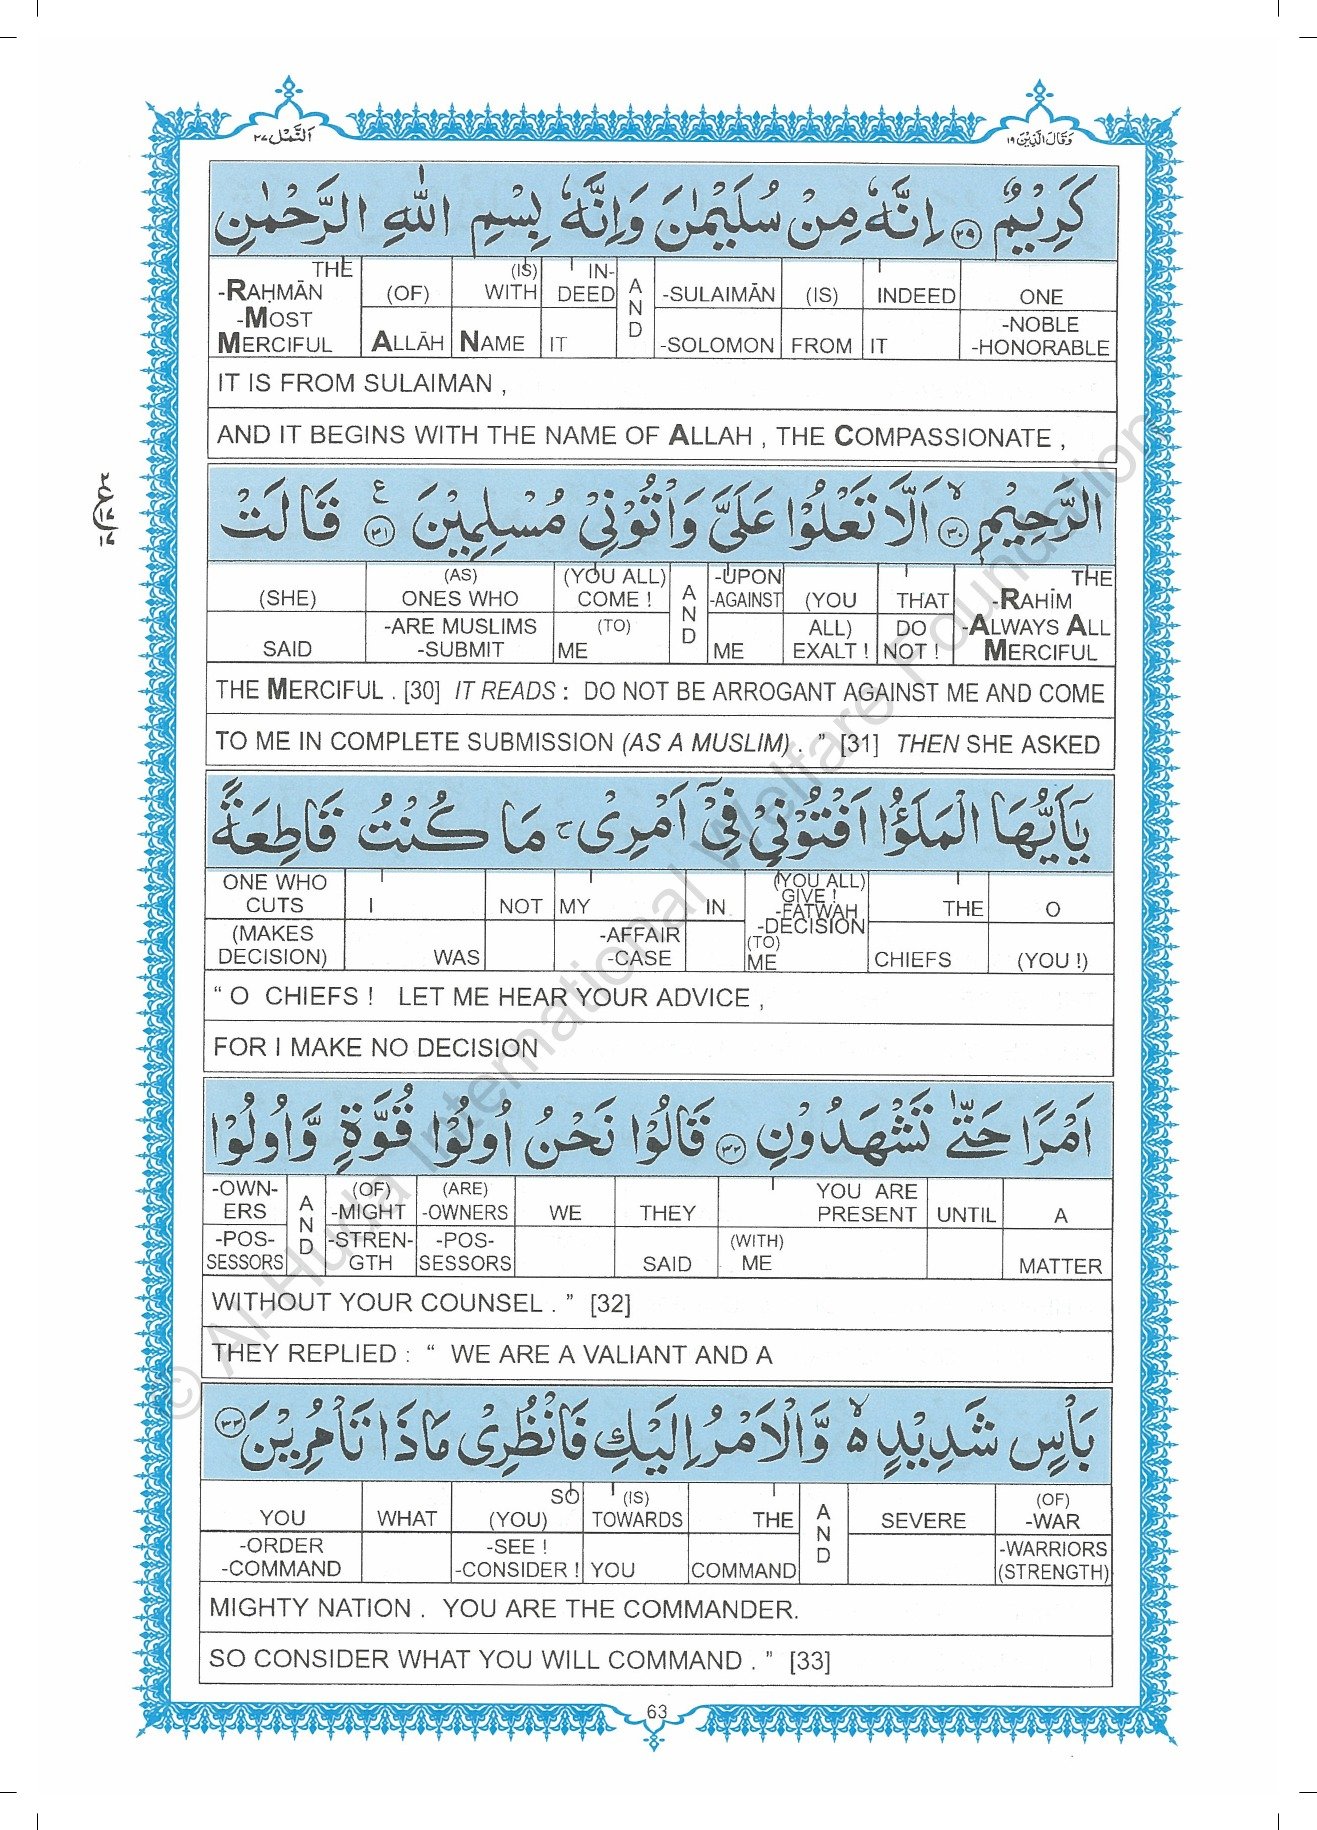 النَّمْل ٢٧
وَقَالَ الَّذِيْنَ ١٩
كَرِيْمٌ ﴿٢٩﴾ اِنَّهٗ مِنْ سُلَيْمٰنَ وَاِنَّهٗ بِسْمِ اللّٰهِ الرَّحْمٰنِ
THE (IS) IN-
-RAḤMĀN (OF) WITH DEED A -SULAIMĀN (IS) INDEED ONE
-MOST N -NOBLE
MERCIFUL ALLĀH NAME IT D -SOLOMON FROM IT -HONORABLE
IT IS FROM SULAIMAN ,
AND IT BEGINS WITH THE NAME OF ALLAH , THE COMPASSIONATE ,
الرَّحِيْمِ ﴿٣٠﴾ اَلَّا تَعْلُوْا عَلَيَّ وَاْتُوْنِيْ مُسْلِمِيْنَ ﴿٣١﴾ قَالَتْ
(AS) (YOU ALL) -UPON THE
(SHE) ONES WHO COME ! A -AGAINST (YOU THAT -RAHĪM
-ARE MUSLIMS (TO) N ALL) DO -ALWAYS ALL
SAID -SUBMIT ME D ME EXALT ! NOT ! MERCIFUL
THE MERCIFUL . [30] IT READS : DO NOT BE ARROGANT AGAINST ME AND COME
TO ME IN COMPLETE SUBMISSION (AS A MUSLIM) . ” [31] THEN SHE ASKED
يٰٓاَيُّهَا الْمَلَؤُا اَفْتُوْنِيْ فِيْٓ اَمْرِيْ ۚ مَا كُنْتُ قَاطِعَةً
ONE WHO (YOU ALL)
CUTS I NOT MY IN GIVE ! THE O
-FATWAH
(MAKES -AFFAIR -DECISION
DECISION) WAS -CASE (TO) ME CHIEFS (YOU !)
“ O CHIEFS ! LET ME HEAR YOUR ADVICE ,
FOR I MAKE NO DECISION
اَمْرًا حَتّٰى تَشْهَدُوْنِ ﴿٣٢﴾ قَالُوْا نَحْنُ اُولُوْا قُوَّةٍ وَّاُولُوْا
-OWN- (OF) (ARE) YOU ARE
ERS A -MIGHT -OWNERS WE THEY PRESENT UNTIL A
-POS- N -STREN- -POS- (WITH)
SESSORS D GTH SESSORS SAID ME MATTER
WITHOUT YOUR COUNSEL . ” [32]
THEY REPLIED : “ WE ARE A VALIANT AND A
بَاْسٍ شَدِيْدٍ ۙ وَّالْاَمْرُ اِلَيْكِ فَانْظُرِيْ مَاذَا تَاْمُرِيْنَ ﴿٣٣﴾
SO (IS) (OF)
YOU WHAT (YOU) TOWARDS THE A SEVERE -WAR
-ORDER -SEE ! N -WARRIORS
-COMMAND -CONSIDER ! YOU COMMAND D (STRENGTH)
MIGHTY NATION . YOU ARE THE COMMANDER.
SO CONSIDER WHAT YOU WILL COMMAND . ” [33]
63
© Al-Huda International Welfare Foundation